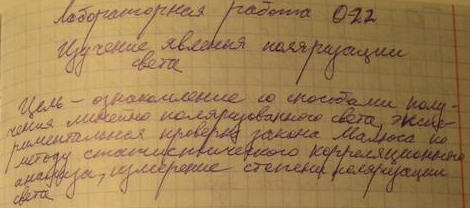 Лабораторная работа О22
Изучение явления поляризации
света
Цель – ознакомление со способами полу-
чения линейно поляризованного света, экспе-
риментальная проверка закона Малюса по
методу статистического корреляционного
анализа, измерение степени поляризации
света